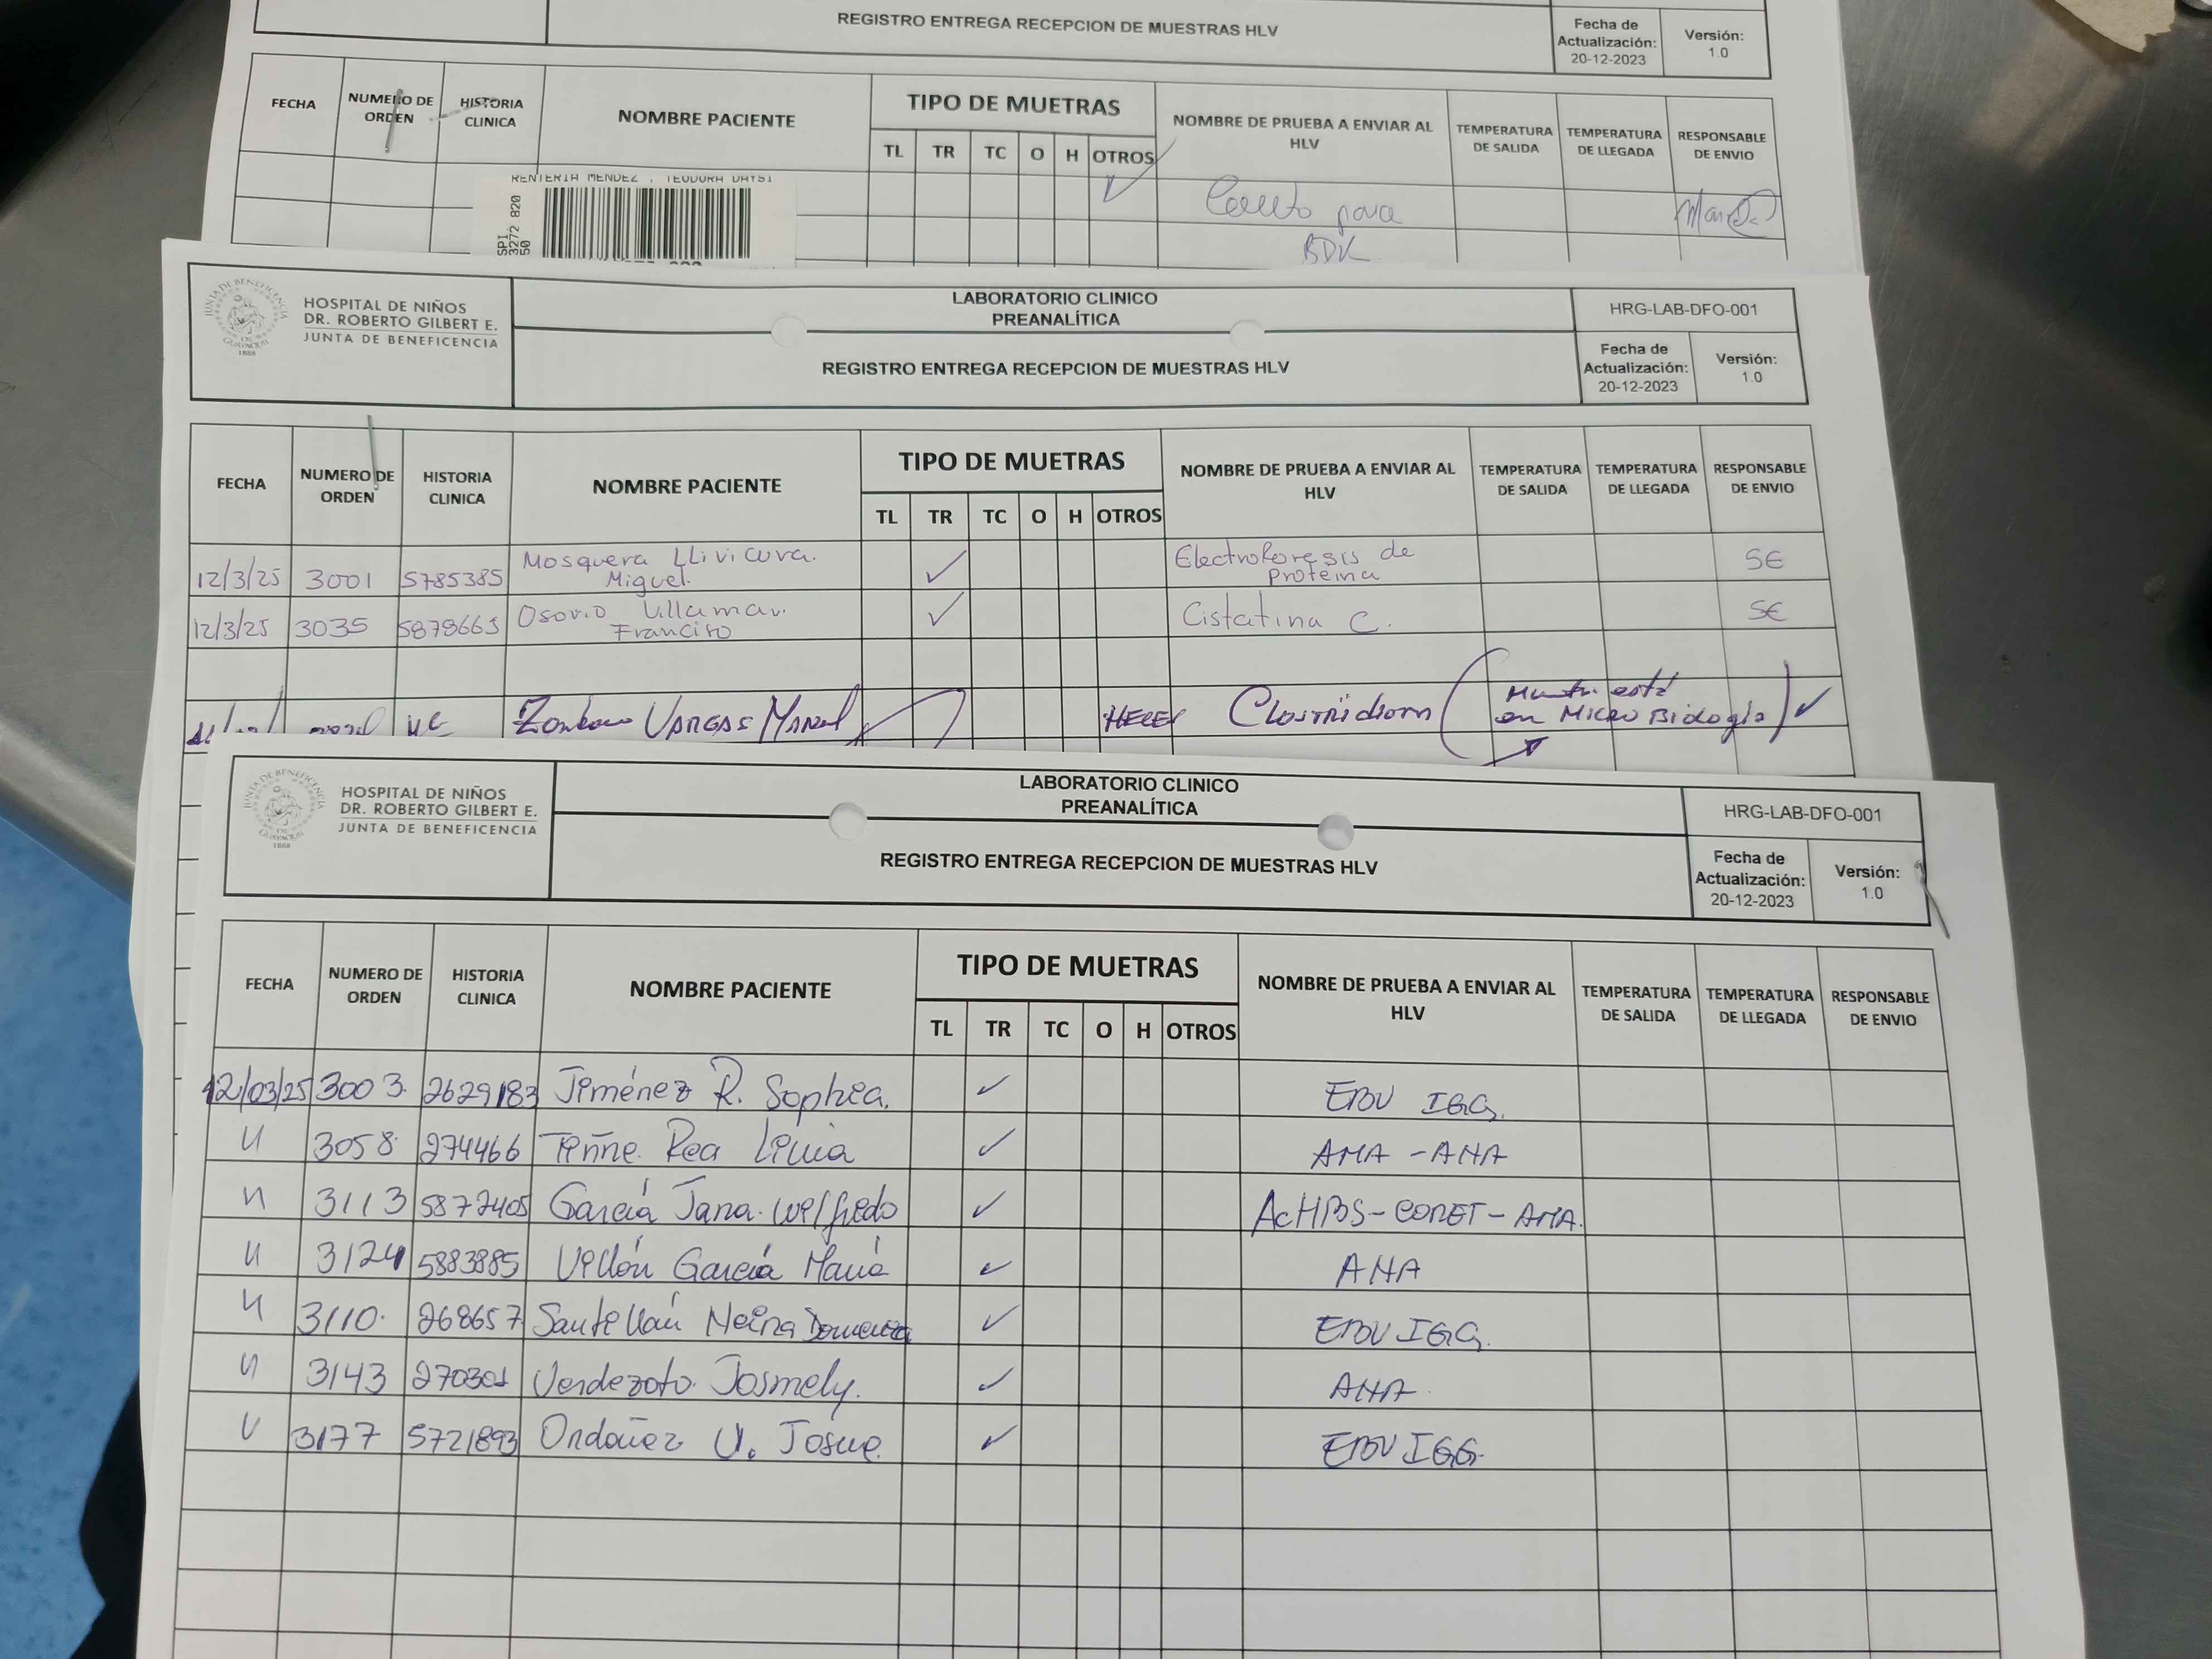 REGISTRO ENTREGA RECEPCION DE MUESTRAS HLV
Fecha de
Actualización:
20-12-2023
Versión:
1.0
FECHA
NUMERO DE
ORDEN
HISTORIA
CLINICA
NOMBRE PACIENTE
TIPO DE MUETRAS
TL TR TC O H OTROS
NOMBRE DE PRUEBA A ENVIAR AL
HLV
TEMPERATURA
DE SALIDA
TEMPERATURA
DE LLEGADA
RESPONSABLE
DE ENVIO
RENTERIA MENDEZ , TEODORA DAYSI
SPI.
3272 820
50
✓ para
BDK
HOSPITAL DE NIÑOS
DR. ROBERTO GILBERT E.
JUNTA DE BENEFICENCIA
JUNTA DE BENEFICENCIA DE GUAYAQUIL
1888
LABORATORIO CLINICO
PREANALÍTICA
REGISTRO ENTREGA RECEPCION DE MUESTRAS HLV
HRG-LAB-DFO-001
Fecha de
Actualización:
20-12-2023
Versión:
1.0
FECHA
NUMERO DE
ORDEN
HISTORIA
CLINICA
NOMBRE PACIENTE
TIPO DE MUETRAS
TL TR TC O H OTROS
NOMBRE DE PRUEBA A ENVIAR AL
HLV
TEMPERATURA
DE SALIDA
TEMPERATURA
DE LLEGADA
RESPONSABLE
DE ENVIO
12/3/25 3001 5785385 Mosquera Llivicura. Miguel. ✓ Electroforesis de Proteina SE
12/3/25 3035 5878665 Osorio Villamar. Francisco ✓ Cistatina C. SE
VARGAS HECES Clostridium ( está
en MicroBiología) ✓
HOSPITAL DE NIÑOS
DR. ROBERTO GILBERT E.
JUNTA DE BENEFICENCIA
JUNTA DE BENEFICENCIA DE GUAYAQUIL
1888
LABORATORIO CLINICO
PREANALÍTICA
REGISTRO ENTREGA RECEPCION DE MUESTRAS HLV
HRG-LAB-DFO-001
Fecha de
Actualización:
20-12-2023
Versión:
1.0
FECHA
NUMERO DE
ORDEN
HISTORIA
CLINICA
NOMBRE PACIENTE
TIPO DE MUETRAS
TL TR TC O H OTROS
NOMBRE DE PRUEBA A ENVIAR AL
HLV
TEMPERATURA
DE SALIDA
TEMPERATURA
DE LLEGADA
RESPONSABLE
DE ENVIO
12/03/25 3003. 2629183 Jiménez R. Sophia. ✓ EBV IGG.
3058. 274466 Rea ✓ AMA - ANA
3113 5877405 García Jana. Welfredo ✓ AcHBS - - AMA.
3124 5883885 García María ✓ ANA
3110. 268657 Santellán Neira Domenica ✓ EBV IGG.
3143 Verdezoto Josmely. ✓ ANA
3177 5721893 Ordóñez V. Josue. ✓ EBV IGG.